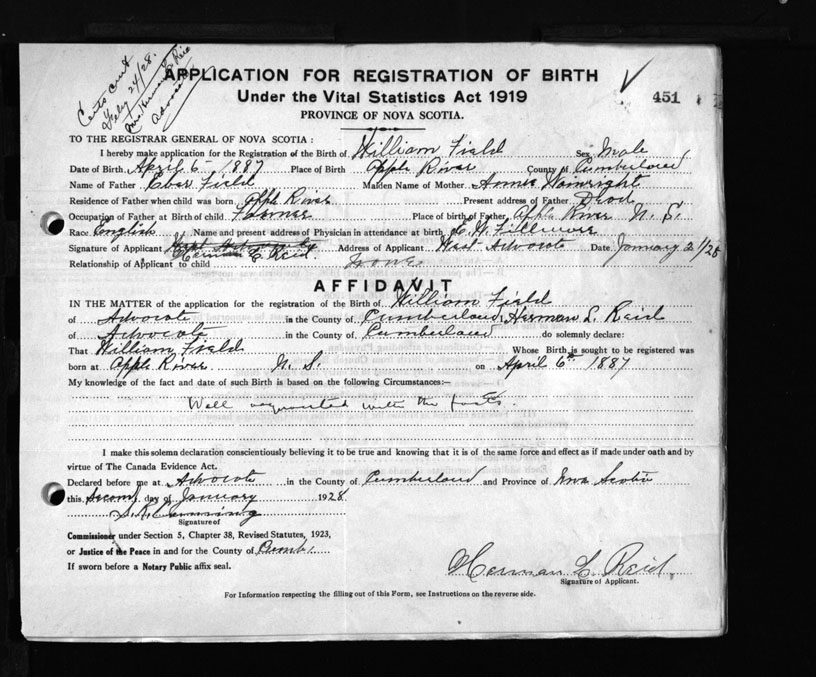 Cert sent
Feby 24/28.
Mrs Herman L Reid
Advocate
APPLICATION FOR REGISTRATION OF BIRTH
Under the Vital Statistics Act 1919
451
PROVINCE OF NOVA SCOTIA.
TO THE REGISTRAR GENERAL OF NOVA SCOTIA :
I hereby make application for the Registration of the Birth of William Field Sex Male
Date of Birth April 6 - 1887 Place of Birth Apple River County of Cumberland
Name of Father Eber Field Maiden Name of Mother Annie Wainright
Residence of Father when child was born Apple River Present address of Father Dead
Occupation of Father at Birth of child Farmer Place of birth of Father Apple River N. S.
Race English Name and present address of Physician in attendance at birth E. W. Fillmore
Signature of Applicant Herman L Reid. Address of Applicant West Advocate Date January 2 1/28
Relationship of Applicant to child None
AFFIDAVIT
IN THE MATTER of the application for the registration of the Birth of William Field
of Advocate in the County of Cumberland, Herman L. Reid
of Advocate in the County of Cumberland do solemnly declare:
That William Field Whose Birth is sought to be registered was
born at Apple River N. S. on April 6th 1887
My knowledge of the fact and date of such Birth is based on the following Circumstances:—
Well acquainted with the facts.
I make this solemn declaration conscientiously believing it to be true and knowing that it is of the same force and effect as if made under oath and by
virtue of The Canada Evidence Act.
Declared before me at Advocate in the County of Cumberland and Province of Nova Scotia
this Second day of January 1928
Signature of
Commissioner under Section 5, Chapter 38, Revised Statutes, 1923,
or Justice of the Peace in and for the County of Cumb.
If sworn before a Notary Public affix seal.
Herman L Reid.
Signature of Applicant.
For Information respecting the filling out of this Form, see Instructions on the reverse side.